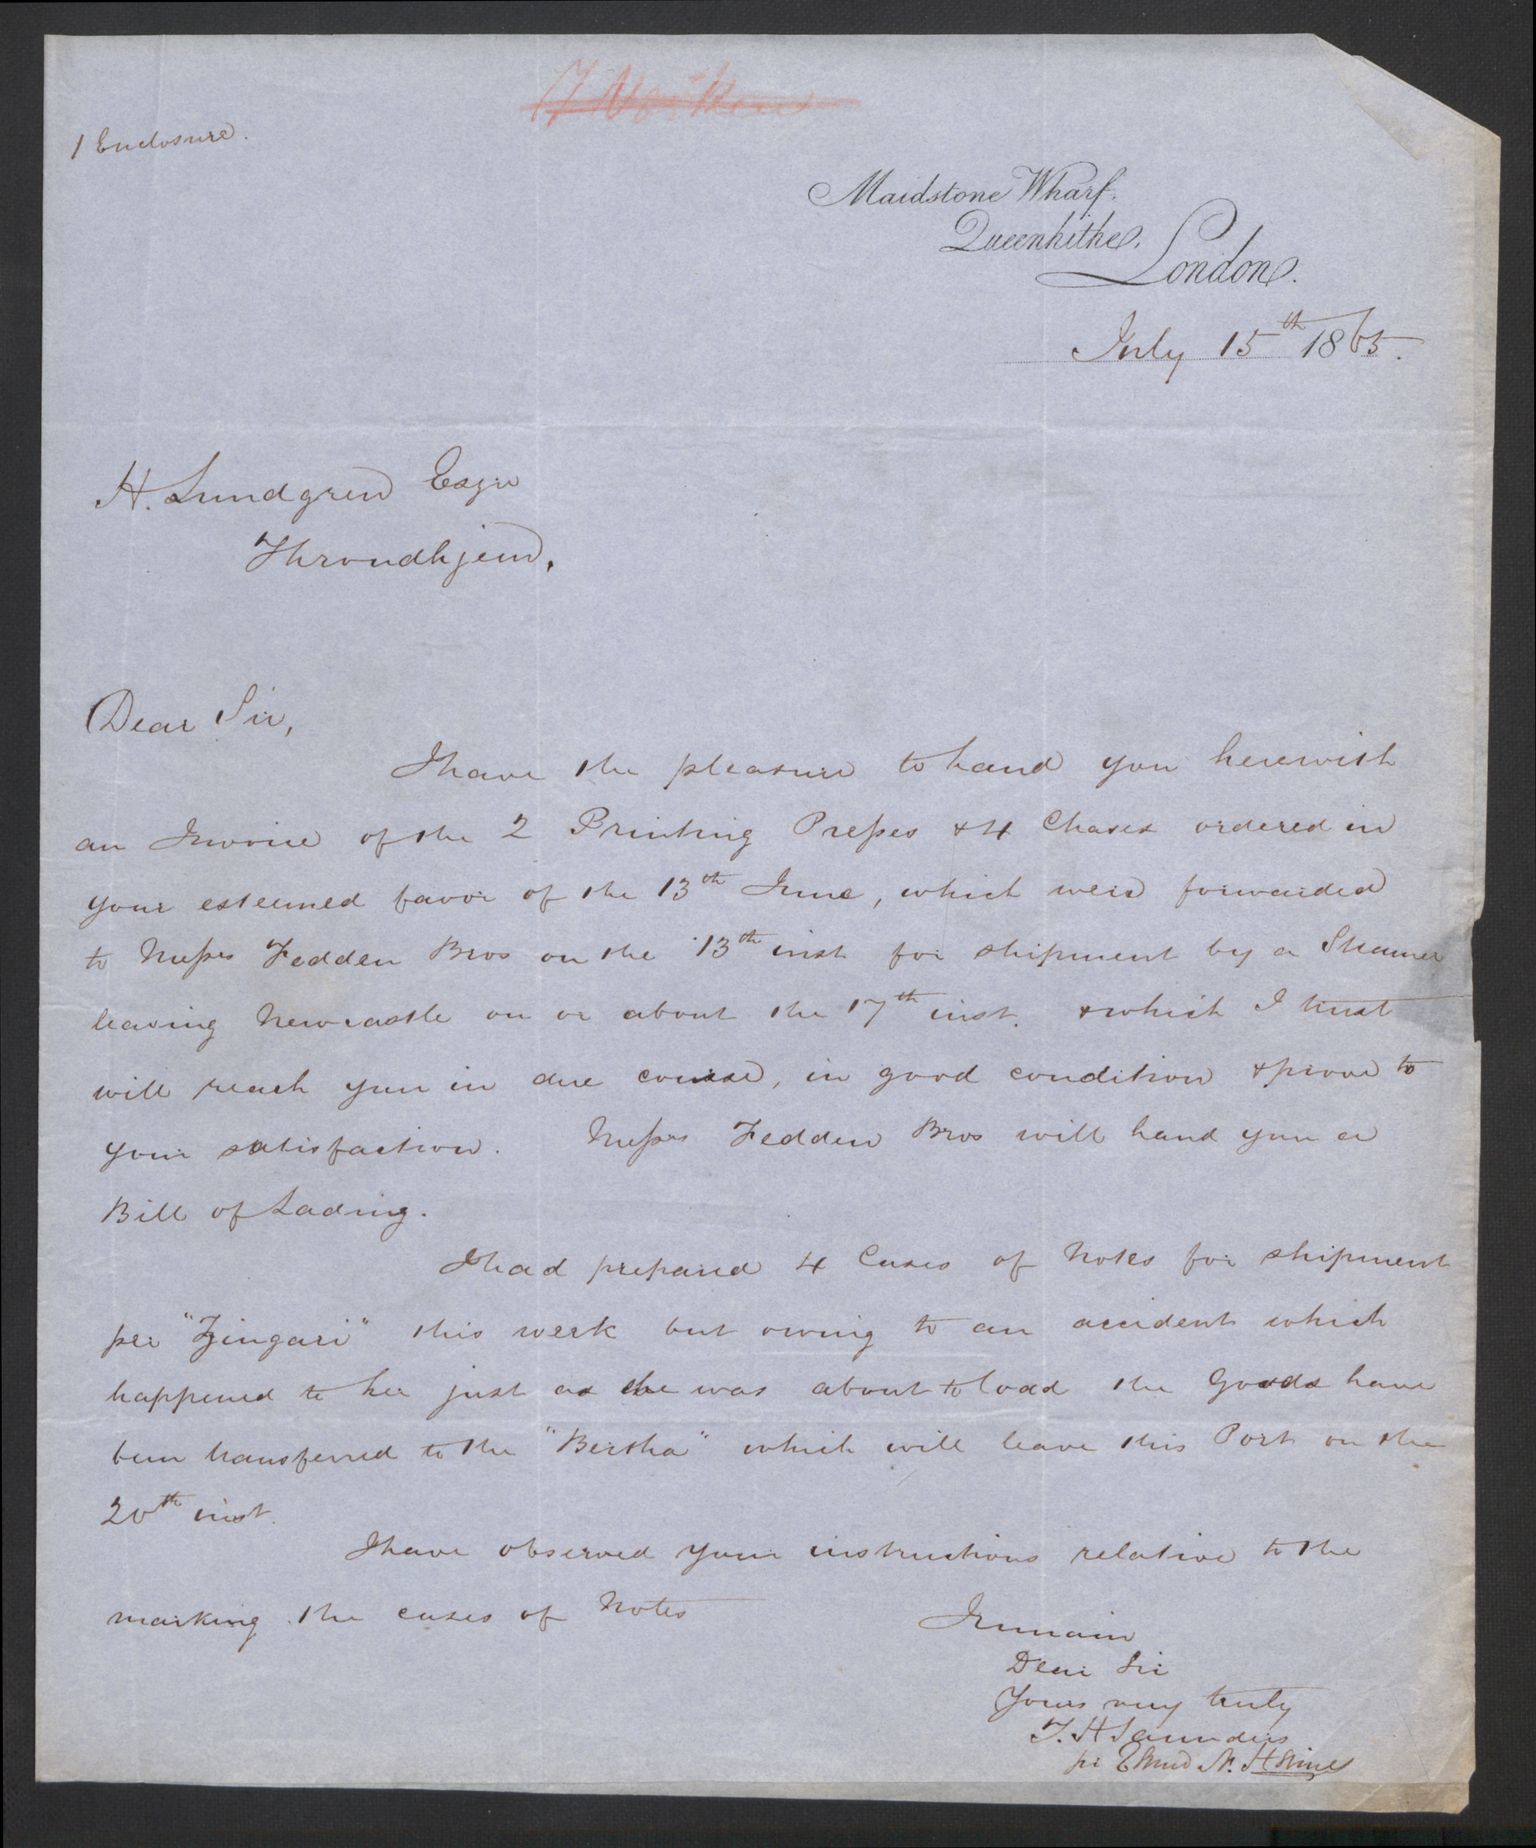 1 Enclosure.
Maidstone Wharf.
Queenhithe.
London.
July 15th 1865.
H. Lundgren Esqre
Throndhjem.
Dear Sir,
I have the pleasure to hand you herewith
an Invoice of the 2 Printing Presses & 4 Chases ordered in
your esteemed favor of the 13th June, which were forwarded
to Messrs Fedden Bros on the 13th inst for shipment by a Steamer
leaving Newcastle on or about the 17th inst. & which I trust
will reach you in due course, in good condition & prove to
your satisfaction. Messrs Fedden Bros will hand you a
Bill of Lading.
I had prepared 4 Cases of Notes for shipment
per "Zingari" this week but owing to an accident which
happened to her just as she was about to load the Goods have
been transferred to the "Bertha" which will leave this Port on the
20th inst.
I have observed your instructions relative to the
marking the cases of Notes
I remain
Dear Sir
Yours very truly
T. H Saunders
pr